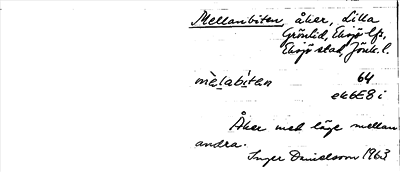 Mellanbiten, åker, Lilla
Grönlid, Eksjö lfs,
Eksjö stad, Jönk. l.
mèlabíten 64
ek6E8i
Åker med läge mellan
andra.
Inger Danielsson 1963